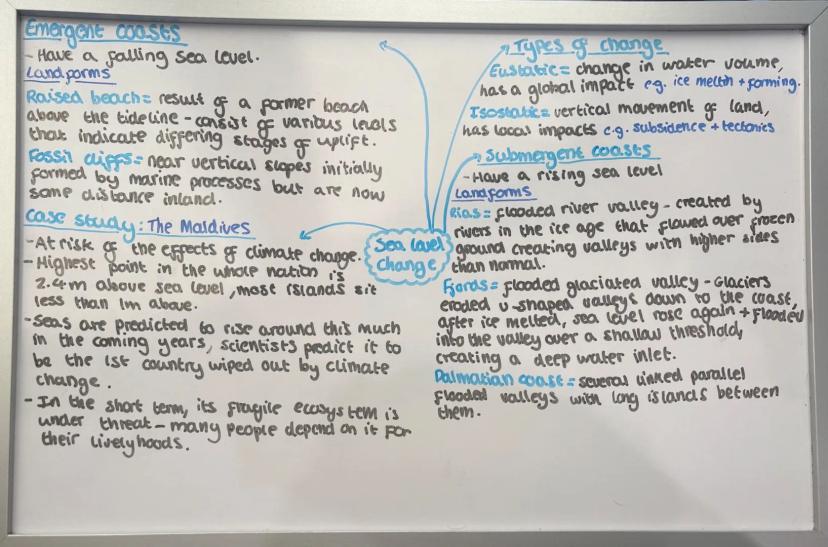 Emergent coasts
- Have a falling sea level.
Landforms
Raised beach = result of a former beach
above the tideline - consist of various levels
that indicate differing stages of uplift.
Fossil cliffs = near vertical slopes initially
formed by marine processes but are now
some distance inland.
Case study: The Maldives
- At risk of the effects of climate change.
- Highest point in the whole nation is
2.4m above sea level, most islands sit
less than 1m above.
- Seas are predicted to rise around this much
in the coming years, scientists predict it to
be the 1st country wiped out by climate
change.
- In the short term, its fragile ecosystem is
under threat - many people depend on it for
their livelyhoods.
Sea level
change
Types of change
Eustatic = change in water voume,
has a global impact e.g. ice meltin + forming.
Isostatic = vertical movement of land,
has local impacts e.g. subsidence + tectonics
Submergent coasts
- Have a rising sea level
Landforms
Rias = flooded river valley - created by
rivers in the ice age that flowed over frozen
ground creating valleys with higher sides
than normal.
Fjords = flooded glaciated valley - Glaciers
eroded u-shaped valleys down to the coast,
after ice melted, sea level rose again + flooded
into the valley over a shallow threshold,
creating a deep water inlet.
Dalmatian coast = several linked parallel
flooded valleys with long islands between
them.